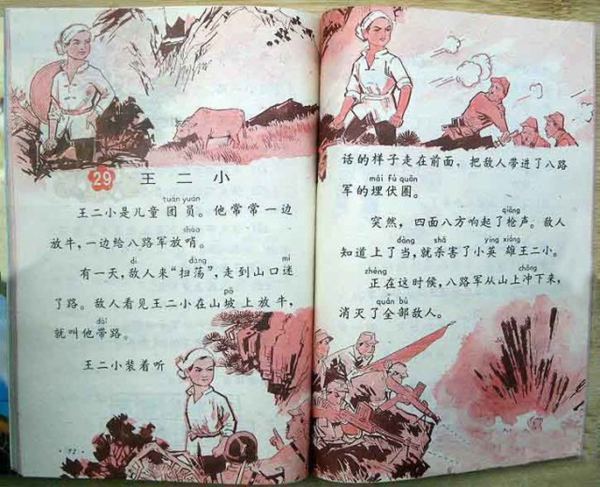 29 王二小
tuán yuán
王二小是儿童 团员。他常常一边
shào
放牛，一边给八路军放哨。
dí dàng mí
有一天，敌人来“扫荡”，走到山口迷
pō
了路。敌人看见王二小在山坡上放牛，
dài
就叫他带路。
王二小装着听
话的样子走在前面，把敌人带进了八路
mái fú quān
军的埋伏圈。
qiāng
突然，四面八方响起了枪声。敌人
dàng shā yīng xióng
知道上了当，就杀害了小英 雄王二小。
zhèng chōng
正在这时候，八路军从山上冲下来，
quán bù
消灭了全部敌人。